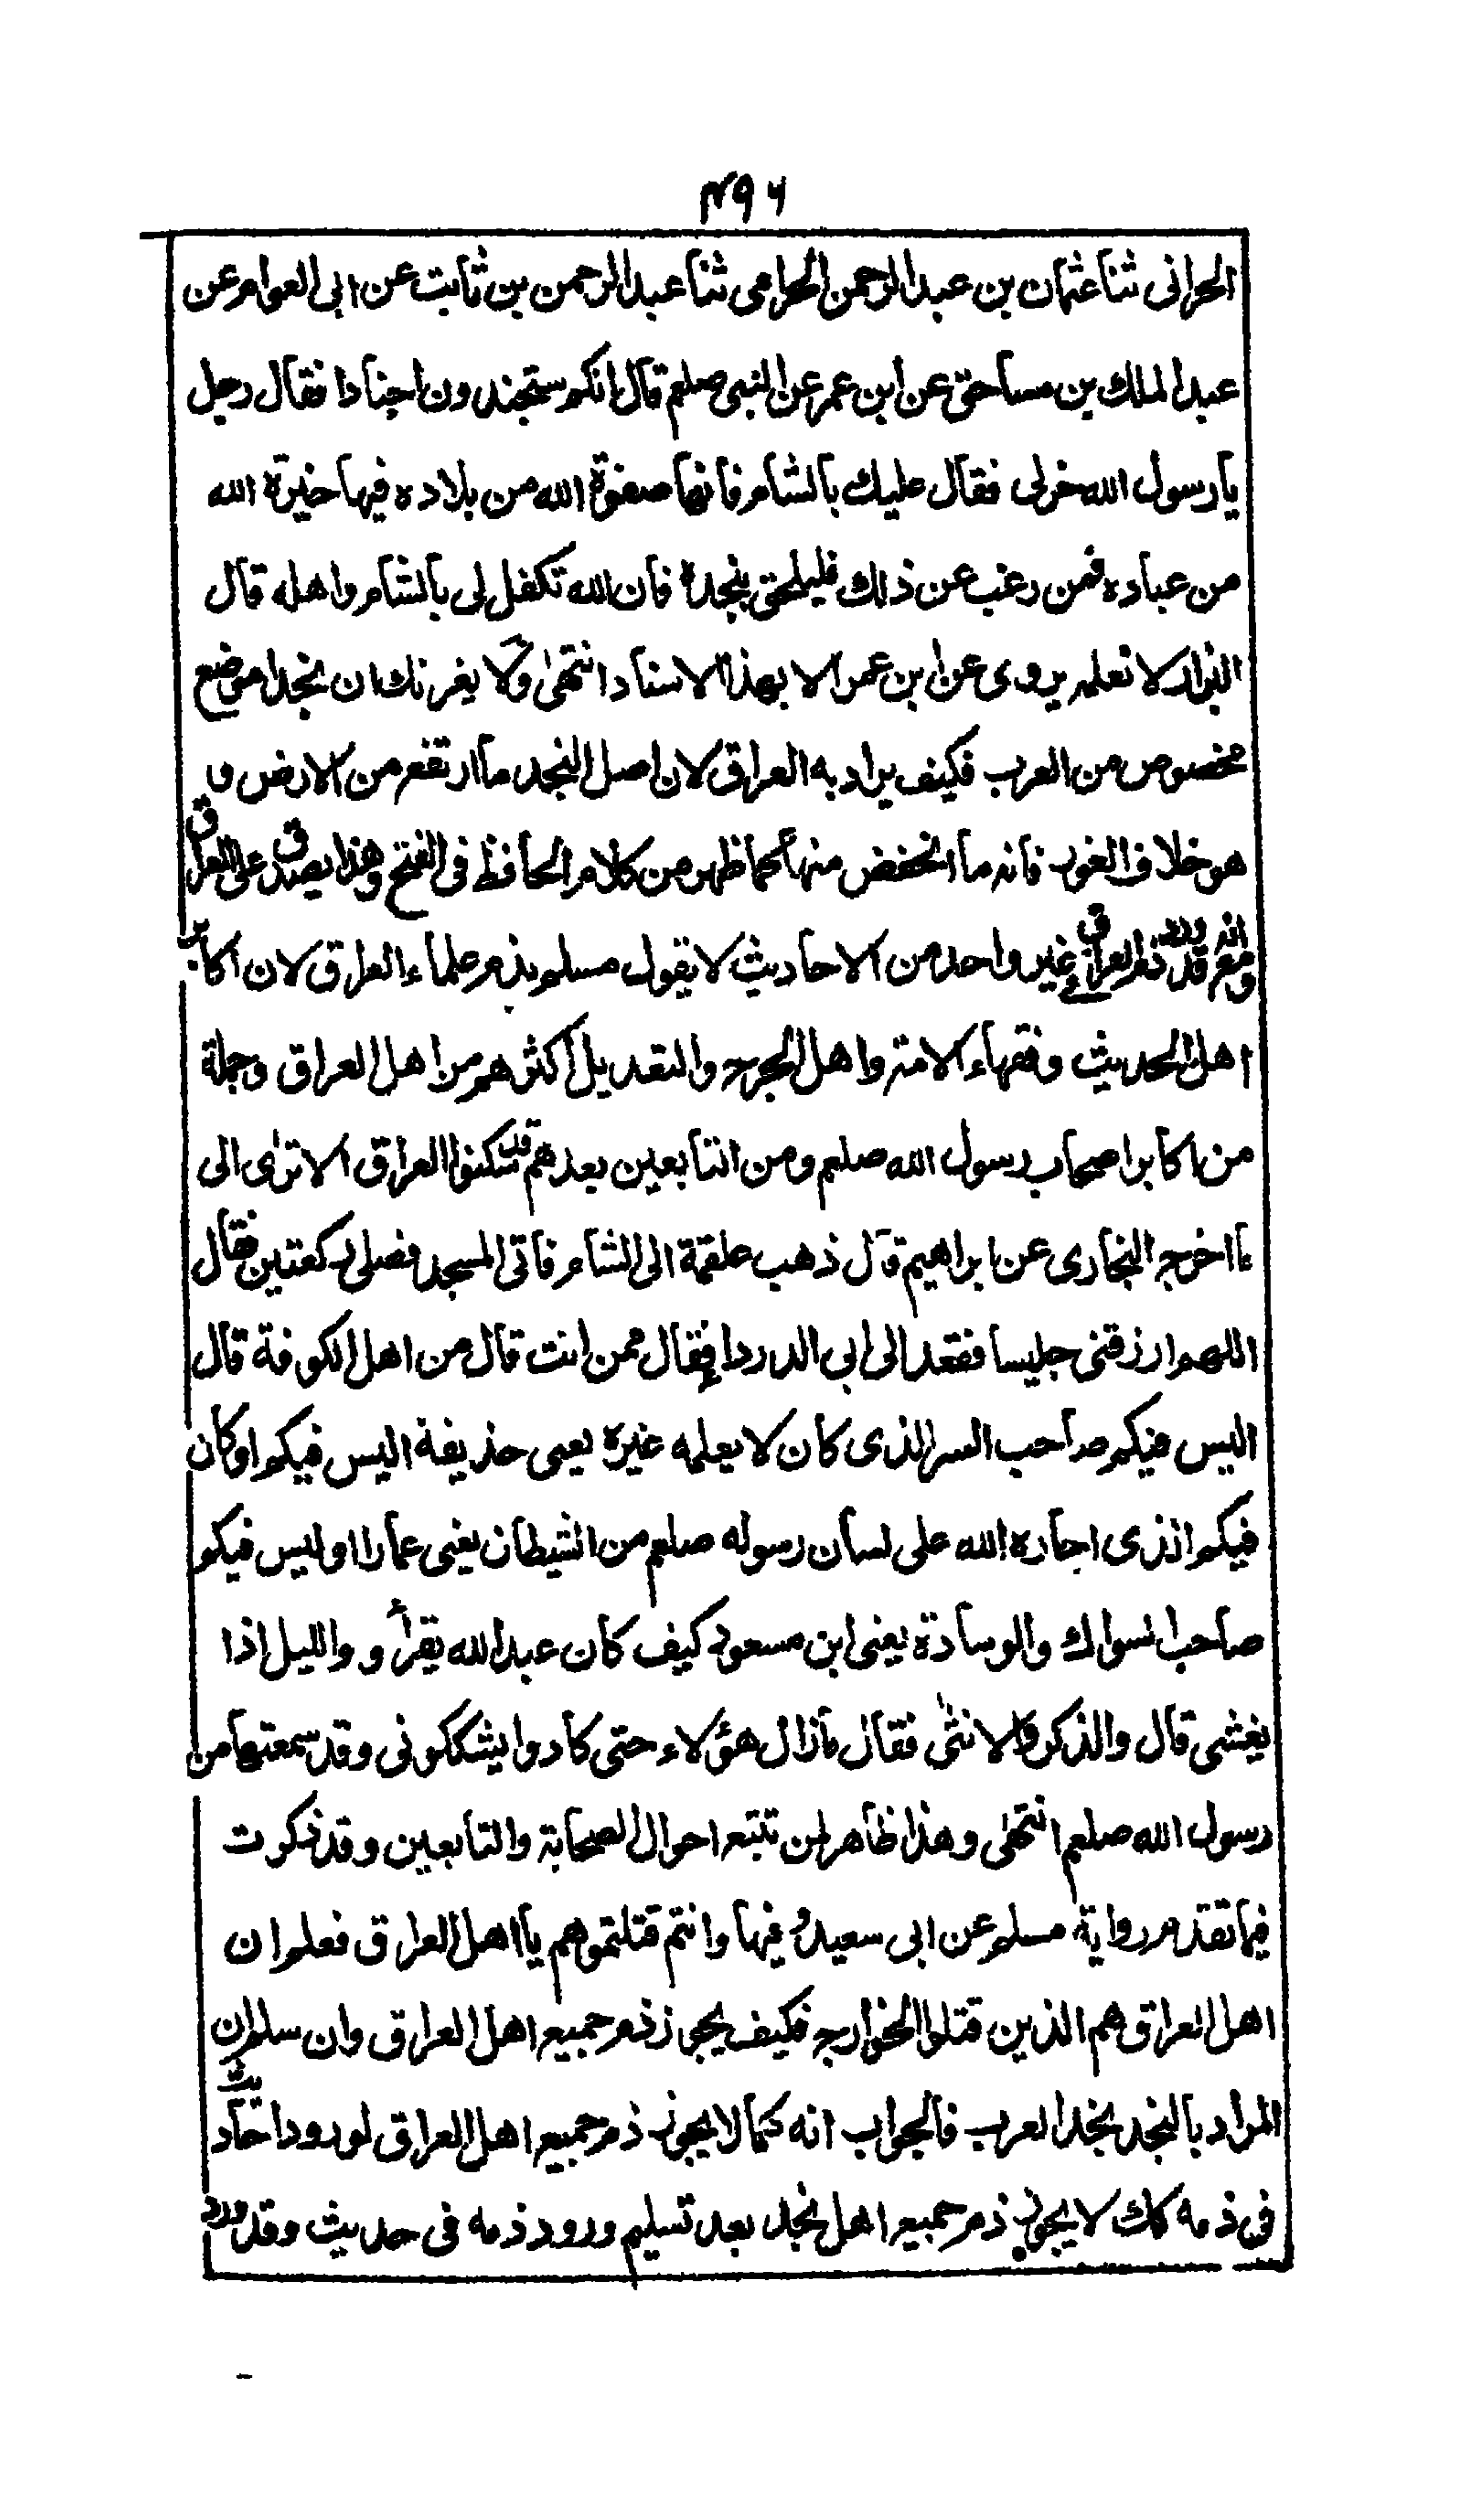 ٤٩٦
الحرانی ثنا عثمان بن عبد الرحمن الحرامی ثنا عبد الرحمن بن ثابت عن ابی العوام عن
عبد الملك بن مساحق عن ابن عمر عن النبی صلعم قال انكم ستجندون اجنادا فقال رجل
یا رسول الله خر لی فقال علیك بالشام فانها صفوة الله من بلاده فیها خیرة الله
من عباده فمن رغب عن ذلك فلیلحق بنجدة فان الله تكفل لی بالشام واهله قال
البزار لا نعلمه یروی عن ابن عمر الا بهذا الاسناد انتهیٰ ولا یغرنك ان نجدا موضع
مخصوص من العرب فكیف یراد به العراق لان اصل النجد ما ارتفع من الارض و
هو خلاف الغور فانه ما انخفض منها كما ظهر من كلام الحافظ فی الفتح وهذا یصدق علی العراق
ومع انه قد ورد ذم العراق فی غیر واحد من الاحادیث لا یقول مسلم بذم علماء العراق لان اكابر
اهل الحدیث وفقهاء الامة واهل الجرح والتعدیل اكثرهم من اهل العراق وجملة
من اكابر اصحاب رسول الله صلعم ومن التابعین بعدهم قد سكنوا العراق الا تریٰ الی
ما اخرجه البخاری عن ابراهیم قال ذهب علقمة الی الشام فاتی المسجد فصلی ركعتین فقال
اللهم ارزقنی جلیسا فقعد الی ابی الدرداء فقال ممن انت قال من اهل الكوفة قال
الیس فیكم صاحب السر الذی كان لا یعلمه غیره یعنی حذیفة الیس فیكم او كان
فیكم الذی اجاره الله علی لسان رسوله صلعم من الشیطان یعنی عمارا اولیس فیكم
صاحب السواك والوسادة یعنی ابن مسعود كیف كان عبد الله یقرأ و واللیل اذا
یغشی قال والذكر والانثیٰ فقال ما زال هؤلاء حتی كادوا یشككونی وقد سمعتها من
رسول الله صلعم انتهیٰ وهذا ظاهر لمن تتبع احوال الصحابة والتابعین وقد ذكرت
فیما تقدم روایة مسلم عن ابی سعید فیها وانتم قتلتموهم یا اهل العراق فعلم ان
اهل العراق هم الذین قتلوا الخوارج فكیف یجوز ذم جمیع اهل العراق وان سلم ان
المراد بالنجد نجد العرب فالجواب انه كما لا یجوز ذم جمیع اهل العراق لورود احادیث
فی ذمه كك لا یجوز ذم جمیع اهل نجد بعد تسلیم ورود ذمه فی حدیث وقد ورد